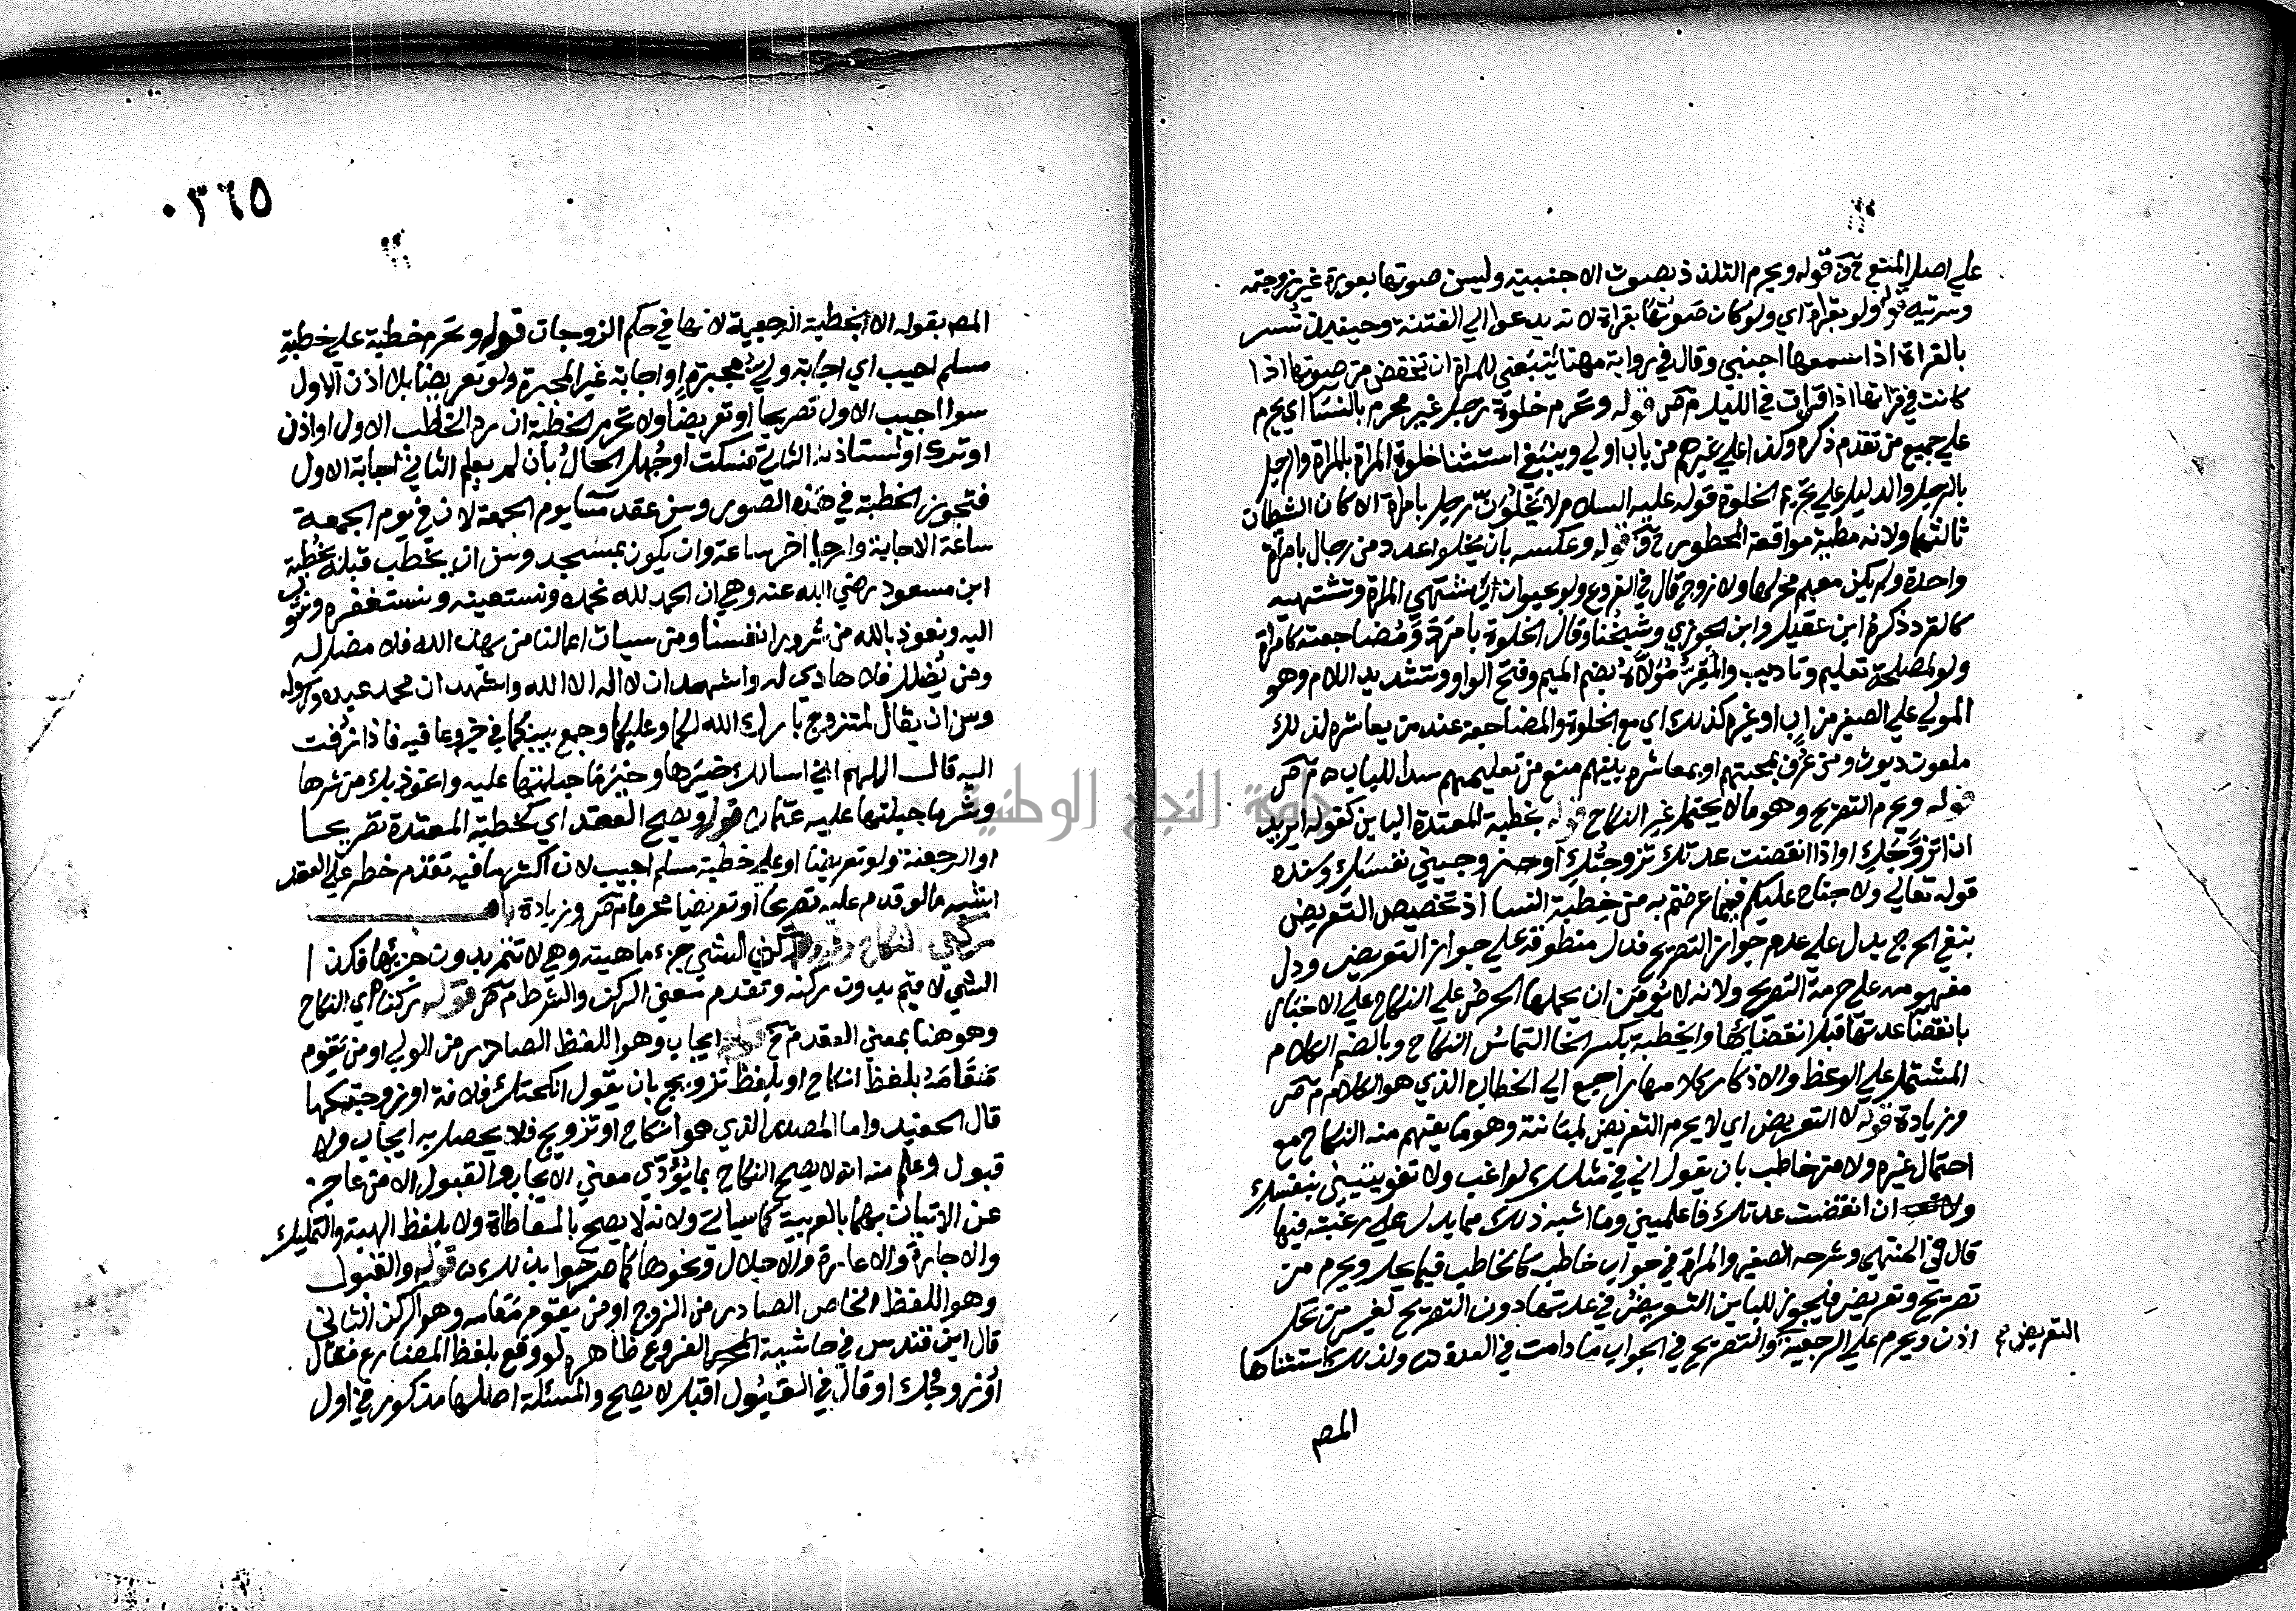 علي اصل المنع م ص قوله ويحرم التلذذ بصوت الاجنبية وليس صوتها بعورة غير زوجته
وسريته قوله ولو بقراة اي ولو كان صوتها بقراة لانه يدعوا الي الفتنة وحينيذ تسر
بالقراة اذا سمعها اجنبي وقال في رواية مهنا ينبغي للمراة ان تخفض من صوتها اذا
كانت في قراتها اذا قرات في الليل م ص قوله وتحرم خلوة رجل غير محرم بالنسا اي يحرم
علي جميع من تقدم ذكره وكذا علي غيرهم من باب اولي وينبغي استثنا خلوة المراة بالمراة والرجل
بالرجل والدليل علي تحريم الخلوة قوله عليه السلام لا يخلون رجل بامراة الا كان الشيطان
ثالثهما ولانه مظنة مواقعة المحظور م ص قوله وعكسه بان يخلوا عدد من رجال بامراة
واحدة ولم يكن معهم محرمها ولا زوج قال في الفروع ولو بحيوان يشتهي المراة وتشتهيه
كالقرد ذكره ابن عقيل وابن الجوزي وشيخنا وقال الخلوة بامرد ومضاجعته كامراة
ولو لمصلحة تعليم وتاديب والمقر مولاه بضم الميم وفتح الواو وتشديد اللام وهو
المولي علي الصغير من اب او غيره كذلك اي مع الخلوة والمضاجعة عند من يعاشره لذلك
ملعون ديوث ومن عرف بمحبتهم او بمعاشرة بينهم منع من تعليمهم سدا للباب م ص
قوله ويحرم التصريح وهو ما لا يحتمل غير النكاح قوله بخطبة المعتدة الباين كقوله اريد
ان اتزوجك او اذا انقضت عدتك تزوجتك او زوجيني نفسك وسنده
قوله تعالي ولا جناح عليكم فيما عرضتم به من خطبة النسا اذ تخصيص التعريض
بنفي الحرج يدل علي عدم جواز التصريح فدل منطوقه علي جواز التعريض ودل
مفهومه علي حرمة التصريح ولانه لا يومن ان يحملها الحرص علي النكاح علي الاخبار
بانقضا عدتها قبل انقضايها والخطبة بكسر الخا التماس النكاح وبالضم الكلام
المشتمل علي الوعظ والاذكار وكلاهما راجع الي الخطاب الذي هو الكلام م ص
وزيادة قوله لا التعريض اي لا يحرم التعريض لمبانة وهو ما يفهم منه النكاح مع
احتمال غيره ولا من خاطب بان يقول اني في مثلك لراغب ولا تفوتيني بنفسك
ولا ان انقضت عدتك فاعلميني وما اشبه ذلك مما يدل علي رغبته فيها
قال في المنتهي وشرحه الصغير والمراة في جواب خاطب كالخاطب فيما يحل ويحرم من
تصريح وتعريض فيجوز للباين التعريض في عدتها دون التصريح لغير من تحل
اذن ويحرم علي الرجعية والتصريح في الجواب ما دامت في العدة ولذلك استثناها
التعريض
المص
٠٣٦٥
المص بقوله الا الخطبة الرجعية لانها في حكم الزوجات قوله وتحرم خطبة علي خطبة
مسلم اجيب اي اجابة ولي مجبرة او اجابة غير المجبرة ولو تعريضا بلا اذن الاول
سوا اجيب الاول تصريحا او تعريضا ولا تحرم الخطبة ان رد الخاطب الاول او اذن
او ترك او استاذنه الثاني فسكت او جهل الحال بان لم يعلم الثاني اجابة الاول
فتجوز الخطبة في هذه الصور وسن عقد مسا يوم الجمعة لان في يوم الجمعة
ساعة الاجابة وارجاها اخر ساعة وان يكون بمسجد وسن ان يخطب قبله بخطبة
ابن مسعود رضي الله عنه وهي ان الحمد لله نحمده ونستعينه ونستغفره ونتوب
اليه ونعوذ بالله من شرور انفسنا ومن سيات اعمالنا من يهد الله فلا مضل له
ومن يضلل فلا هادي له واشهد ان لا اله الا الله واشهد ان محمد عبده ورسوله
وسن ان يقال لمتزوج بارك الله لكما وعليكما وجمع بينكما في خير وعافيه فاذا زفت
اليه قال اللهم اني اسالك خيرها وخير ما جبلتها عليه واعوذ بك من شرها
وشر ما جبلتها عليه عثمان قوله ويصح العقد اي كخطبة المعتدة تصريحا
او الرجعية ولو تعريضا او علي خطبة مسلم اجيب لان اكثر ما فيه تقدم حظر علي العقد
اشبه ما لو قدم عليه تصريحا او تعريضا محرما م ص وزيادة باب
ركني النكاح قوله ركن الشي جزء ماهيته وهي لا تتم بدون جزئها فكذا
الشي لا يتم بدون ركنه وتقدم معني الركن والشرط م ص قوله ركناه اي النكاح
وهو هنا بمعني العقد م ح قوله ايجاب وهو اللفظ الصادر من الولي او من يقوم
مقامه بلفظ انكاح او بلفظ تزويج بان يقول انكحتك فلانة او زوجتكها
قال الحفيد واما المصدر الذي هو انكاح او تزويج فلا يحصل به ايجاب ولا
قبول وعلم منه انه لا يصح النكاح بما يؤدي معني الايجاب والقبول الا من عاجز
عن الاتيان بهما بالعربية كما سياتي ولانه لا يصح بالمعاطاة ولا بلفظ الهبة والتمليك
والاجارة والاعارة والاحلال ونحوها كما صرحوا بذلك قوله والقبول
وهو اللفظ الخاص الصادر من الزوج او من يقوم مقامه وهو الركن الثاني
قال ابن قندس في حاشية الفروع ظاهره لو وقع بلفظ المضارع فقال
ازوجك او قال في القبول اقبل لا يصح والمسئلة اصلها مذكور في اول